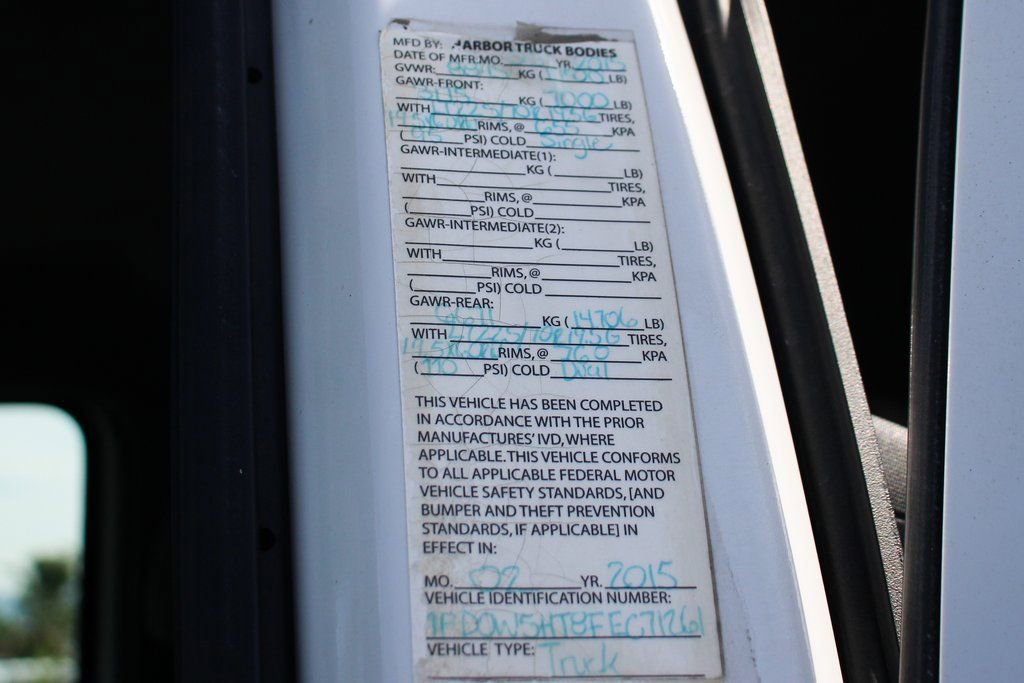 MFD BY: HARBOR TRUCK BODIES
DATE OF MFR.MO. YR. 2015
GVWR: KG ( LB)
GAWR-FRONT:
3175 KG ( 7000 LB)
WITH 225/70R19.5G TIRES,
19.5X6.0 RIMS, @ 655 KPA
( 95 PSI) COLD Single
GAWR-INTERMEDIATE(1):
KG ( LB)
WITH TIRES,
RIMS, @ KPA
( PSI) COLD
GAWR-INTERMEDIATE(2):
KG ( LB)
WITH TIRES,
RIMS, @ KPA
( PSI) COLD
GAWR-REAR:
KG ( 14706 LB)
WITH 225/70R19.5G TIRES,
19.5X6.0 RIMS, @ 760 KPA
( 110 PSI) COLD Dual
THIS VEHICLE HAS BEEN COMPLETED
IN ACCORDANCE WITH THE PRIOR
MANUFACTURES' IVD, WHERE
APPLICABLE. THIS VEHICLE CONFORMS
TO ALL APPLICABLE FEDERAL MOTOR
VEHICLE SAFETY STANDARDS, [AND
BUMPER AND THEFT PREVENTION
STANDARDS, IF APPLICABLE] IN
EFFECT IN:
MO. 02 YR. 2015
VEHICLE IDENTIFICATION NUMBER:
1FDOW5HT8FEC71261
VEHICLE TYPE: Truck